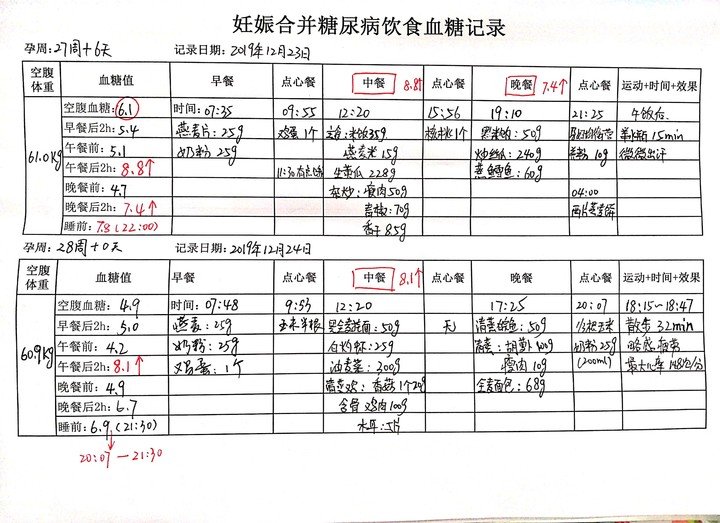 妊娠合并糖尿病饮食血糖记录
孕周:27周+6天 记录日期:2019年12月23日
空腹体重 血糖值 早餐 点心餐 中餐 8.8↑ 点心餐 晚餐 7.4↑ 点心餐 运动+时间+效果
61.0kg 空腹血糖:6.1 时间:07:35 09:55 12:20 15:56 19:10 21:25 午饭后
早餐后2h:5.4 燕麦片:25g 鸡蛋1个 米饭35g 核桃1个 黑米饭:50g 15min
午餐前:5.1 奶粉25g 燕麦米15g 240g 10g 微微出汗
午餐后2h:8.8↑ 11:30 生黄瓜228g 蒸鳕鱼:60g
晚餐前:4.7 瘦肉50g 04:00
晚餐后2h:7.4↑ 青椒:70g 两片
睡前:7.8(22:00) 香干85g
孕周:28周+0天 记录日期:2019年12月24日
空腹体重 血糖值 早餐 点心餐 中餐 8.1↑ 点心餐 晚餐 点心餐 运动+时间+效果
60.9kg 空腹血糖:4.9 时间:07:48 9:53 12:20 17:25 20:07 18:15~18:47
早餐后2h:5.0 燕麦:25g 玉米半根 50g 无 清蒸鲈鱼:50g 玉米 散步32min
午餐前:4.2 奶粉:25g 白灼虾:25g 胡萝卜100g 奶粉25g 略感
午餐后2h:8.1↑ 鸡蛋:1个 油麦菜:200g 瘦肉10g (200ml) 最大心率148次/分
晚餐前:4.9 香菇1个20g 全麦面包:68g
晚餐后2h:6.7 鸡肉100g
睡前:6.9(21:30)
20:07—21:30